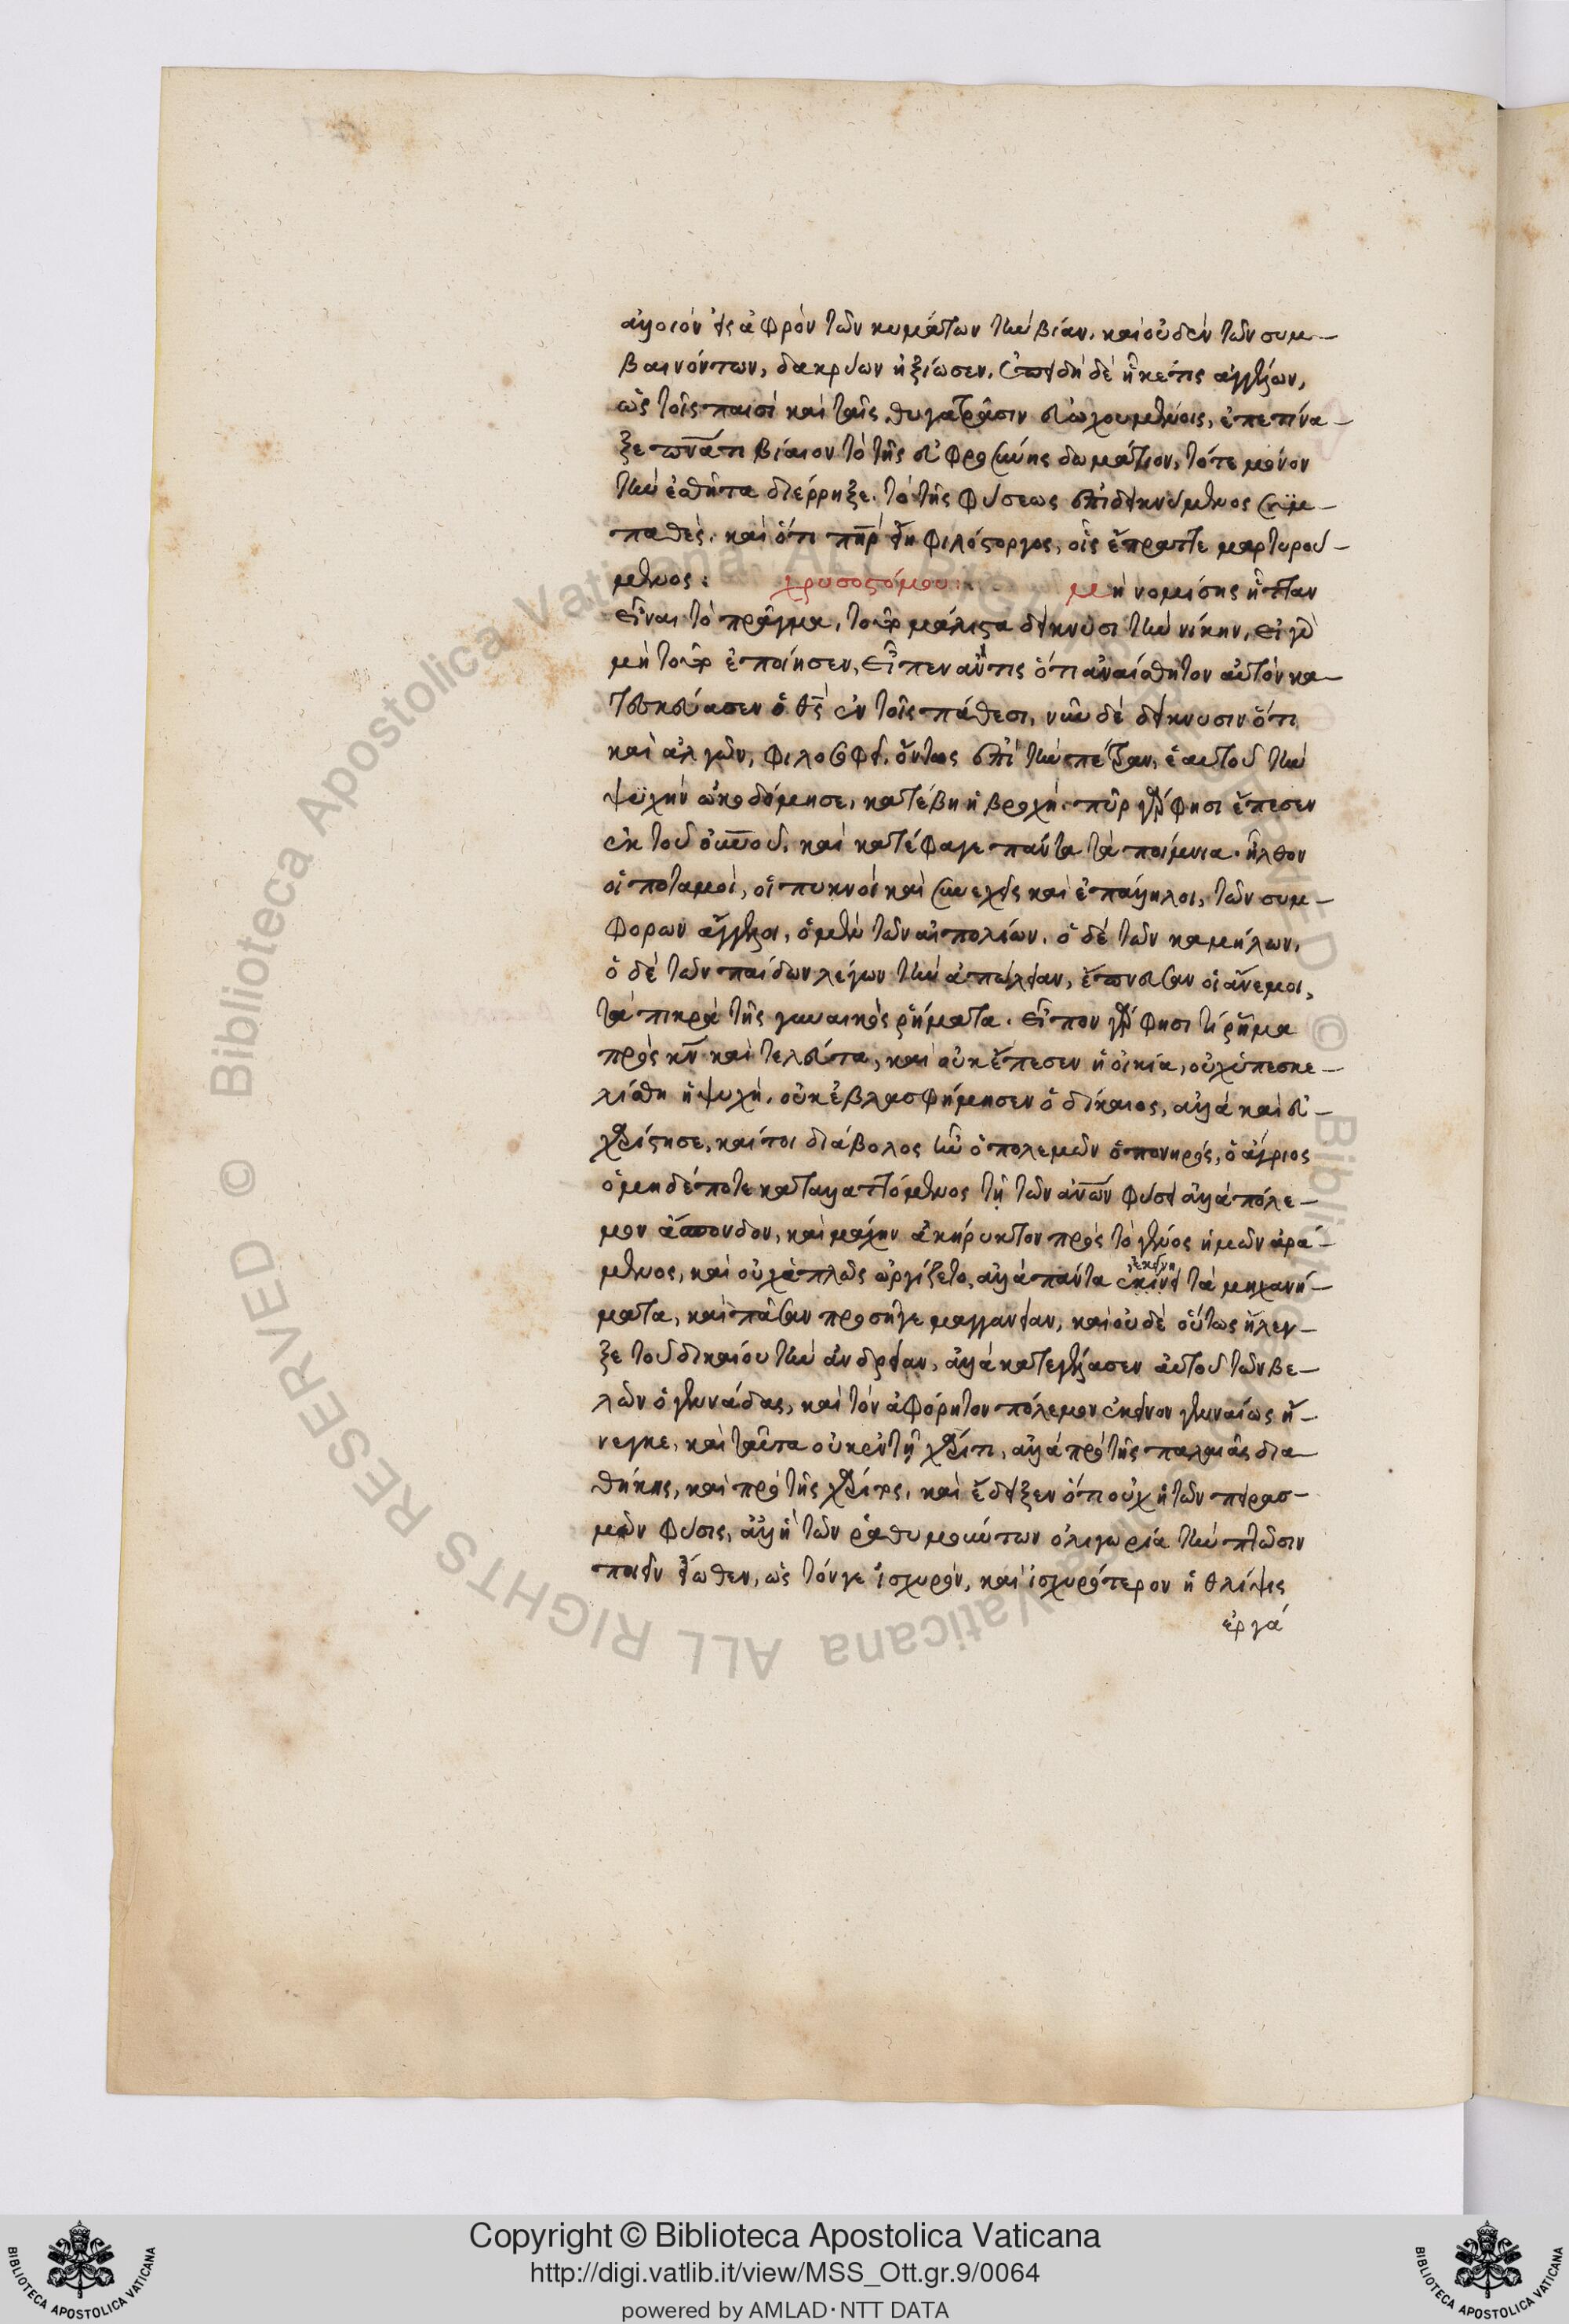 ἀλλοιὸν εἰς ἀφρὸν τῶν κυμάτων τὴν βίαν. καὶ οὐδὲν τῶν συμ-
βαινόντων, δακρύων ἠξίωσεν. ἐπειδὴ δὲ ἧκέ τις ἀγγέλλων,
ὡς τοῖς παισὶ καὶ ταῖς θυγατράσιν εὐωχουμένοις, ἐπετίνα-
ξε πν̅α τι βίαιον τὸ τῆς εὐφροσύνης δωμάτιον, τότε μόνον
τὴν ἐσθῆτα διέρρηξε. τὸ τῆς φύσεως ἐπιδεικνύμενος συμ-
παθές. καὶ ὅτι πη̅ρ ἦν φιλόστοργος, οἷς ἔπραττε μαρτυρού-
μενος: χρυσοστόμου: μὴ νομίσης ἧτταν
εἶναι τὸ πρᾶγμα, τοῦτο μάλιστα δείκνυσι τὴν νίκην. εἰ γὰρ
μὴ τοῦτο ἐποίησεν, εἶπεν ἄν τις ὅτι ἀναίσθητον αὐτὸν κα-
τεσκεύασεν ὁ θ̅ς ἐν τοῖς πάθεσι, νῦν δὲ δείκνυσιν ὅτι
καὶ ἀλγῶν, φιλοσοφεῖ. ὄντως ἐπὶ τὴν πέτραν, ἑαυτοῦ τὴν
ψυχὴν ὠκοδόμησε. κατέβη ἡ βροχή. πῦρ γάρ φησι ἔπεσεν
ἐκ τοῦ οὐ̅νοῦ. καὶ κατέφαγε πάντα τὰ ποίμνια. ἦλθον
οἱ ποταμοὶ, οἱ πυκνοὶ καὶ συνεχεῖς καὶ ἐπάλληλοι, τῶν συμ-
φορων ἄγγελοι, ὁ μὲν τῶν αἰπολίων. ὁ δὲ τῶν καμήλων.
ὁ δὲ τῶν παίδων λέγων τὴν ἀπώλειαν, ἔπνευσαν οἱ ἄνεμοι,
τὰ πικρὰ τῆς γυναικὸς ῥήματα. εἶπον γάρ φησι τί ῥῆμα
πρὸς κ̅ν καὶ τελεύτα, καὶ οὐκ ἔπεσεν ἡ οἰκία, οὐχ ὑπεσκε-
λίσθη ἡ ψυχή. οὐκ ἐβλασφήμησεν ὁ δίκαιος, ἀλλὰ καὶ εὐ-
χαρίστησε, καίτοι διάβολος ἦν ὁ πολεμῶν ὁ πονηρός, ὁ ἄγριος
ὁ μηδέποτε καταλλαττόμενος τῇ τῶν ἀν̅ων φύσει ἀλλὰ πόλε-
μον ἄσπονδον, καὶ μάχην ἀκήρυκτον πρὸς τὸ γένος ἡμῶν ἀρά-
μενος, καὶ οὐχ ἁπλῶς ὠργίζετο, ἀλλὰ πάντα ἐκίνει τὰ μηχανή-
ματα, καὶ πᾶσαν προσῆγε μαγγανείαν, καὶ οὐδὲ οὕτως ἤλεγ-
ξε τοῦ δικαίου τὴν ἀνδρείαν, ἀλλὰ κατεγέλασεν αὐτοῦ τῶν βε-
λῶν ὁ γεννάδας, καὶ τὸν ἀφόρητον πόλεμον ἐκεῖνον γενναίως ἤ-
νεγκε, καὶ ταῦτα οὐκ ἐν τῇ χάριτι, ἀλλὰ πρὸ τῆς παλαιᾶς δια
θήκης, καὶ πρὸ τῆς χάριτος. καὶ ἔδειξεν ὅτι οὐχ ἡ τῶν πειρασ-
μῶν φύσις, ἀλλ' ἡ τῶν ῥαθυμούντων ὀλιγωρία τὴν πτῶσιν
ποιεῖν εἴωθεν, ὡς τόν γε ἰσχυρὸν, καὶ ἰσχυρότερον ἡ θλίψις
ἐργά
Copyright © Biblioteca Apostolica Vaticana
http://digi.vatlib.it/view/MSS_Ott.gr.9/0064
powered by AMLAD·NTT DATA